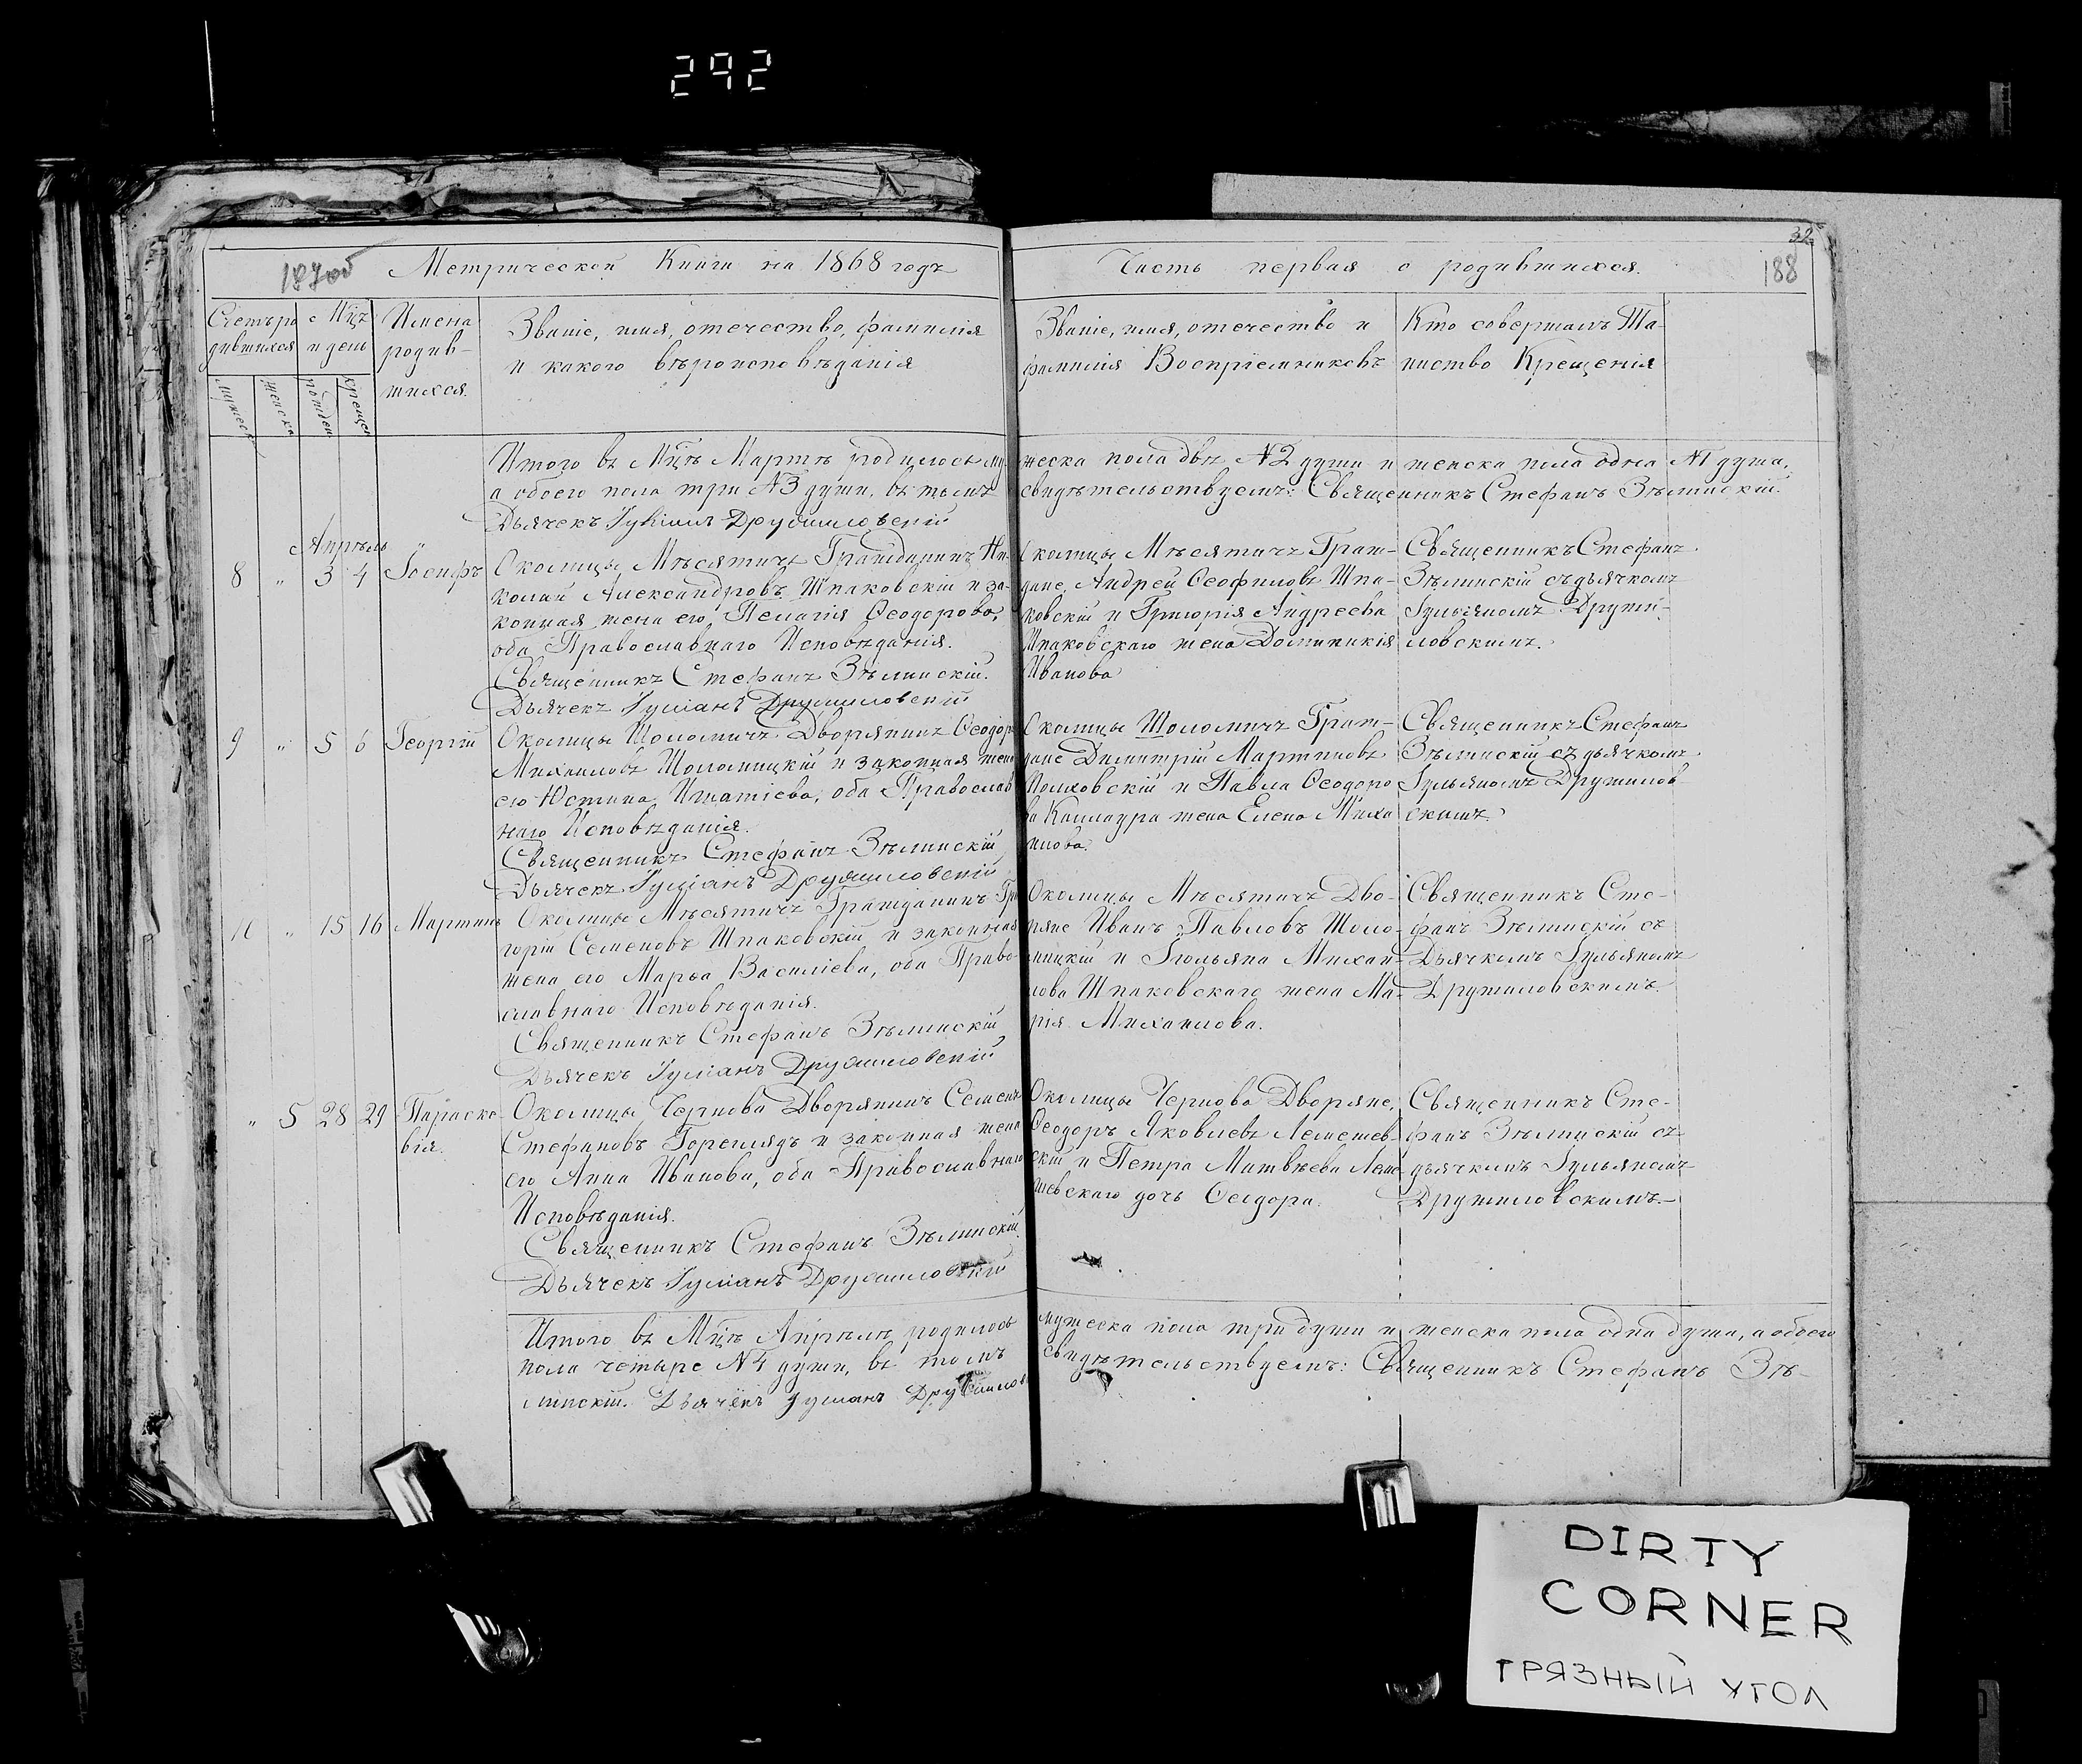 292
32
187об Метрической Книги на 1868 годъ
Часть первая о родившихся.
188
Счетъ ро
дившихся
с Мцъ
и день
Имена
родив-
шихся.
Званіе, имя, отечество, фамилія
и какого вѣроисповѣданія
Званіе, имя, отечество и
фамилія Воспріемниковъ
Кто совершалъ Та-
инство Крещенія
мужеск
женска
рожден
крещен
Итого въ Мцѣ Мартѣ родилось му-
жеска пола двѣ №2 души и женска пола одна №1 душа,
а обоего пола три №3 души, въ томъ
свидѣтельствуемъ: Священникъ Стефанъ Зѣлинскій.
Дьячекъ Іуліанъ Дружиловскій
Апрѣль
8 " 3 4 Іосифъ
Околицы Мѣсятичъ Гражданинъ Ни-
колай Александровъ Шпаковскій и за-
конная жена его, Пелагія Ѳеодорова,
оба Православнаго Исповѣданія.
Священникъ Стефанъ Зѣлинскій.
Дьячекъ Іуліанъ Дружиловскій
Околицы Мѣсятичъ Граж-
дане, Андрей Ѳеофиловъ Шпа-
ковскій и Григорія Андреева
Шпаковскаго жена Доминикія
Иванова
Священникъ Стефанъ
Зѣлинскій съ дьячкомъ
Іульяномъ Дружи-
ловскимъ.
9 " 5 6 Георгій
Околицы Шоломичъ Дворянинъ Ѳеодоръ
Михаиловъ Шоломицкій и законная жена
его Юстина Игнатіева, оба Православ
наго Исповѣданія.
Священникъ Стефанъ Зѣлинскій
Дьячекъ Іуліанъ Дружиловскій
Околицы Шоломичъ Граж-
дане Димитрій Мартиновъ
и Павла Ѳеодоро
ва Каллаура жена Елена Миха
илова.
Священникъ Стефанъ
Зѣлинскій съ дьячкомъ
Іульяномъ Дружилов
скимъ.
10 " 15 16 Мартинъ
Околицы Мѣсятичъ Гражданинъ Гри
горій Семеновъ Шпаковскій и законная
жена его Марья Василіева, оба Право-
славнаго Исповѣданія.
Священникъ Стефанъ Зѣлинскій
Дьячекъ Іуліанъ Дружиловскій
Околицы Мѣсятичъ Дво-
ряне Иванъ Павловъ Шоло-
мицкій и Іюльяна Михаи-
лова Шпаковскаго жена Ма-
рія Михаилова.
Священникъ Сте-
фанъ Зѣлинскій съ
Дьячкомъ Іульяномъ
Дружиловскимъ.
" 5 28 29 Параске
вія.
Околицы Чернова Дворянинъ Семенъ
Стефановъ Гореглядъ и законная жена
его Анна Иванова, оба Православнаго
Исповѣданія.
Священникъ Стефанъ Зѣлинскій.
Дьячекъ Іуліанъ Дружиловскій
Околицы Чернова Дворяне,
Ѳеодоръ Яковлевъ Лемешев-
скій и Петра Матвѣева Леме
шевскаго дочь Ѳеодора.
Священникъ Сте-
фанъ Зѣлинскій съ
дьячкомъ Іульяномъ
Дружиловскимъ.-
Итого въ Мцѣ Апрѣлѣ родилось
мужеска пола три души и женска пола одна душа, а обоего
пола четыре №4 души, въ томъ
свидѣтельствуемъ: Священникъ Стефанъ Зѣ-
линскій. Дьячекъ Іуліанъ Дружилов
DIRTY
CORNER
ГРЯЗНЫЙ УГОЛ